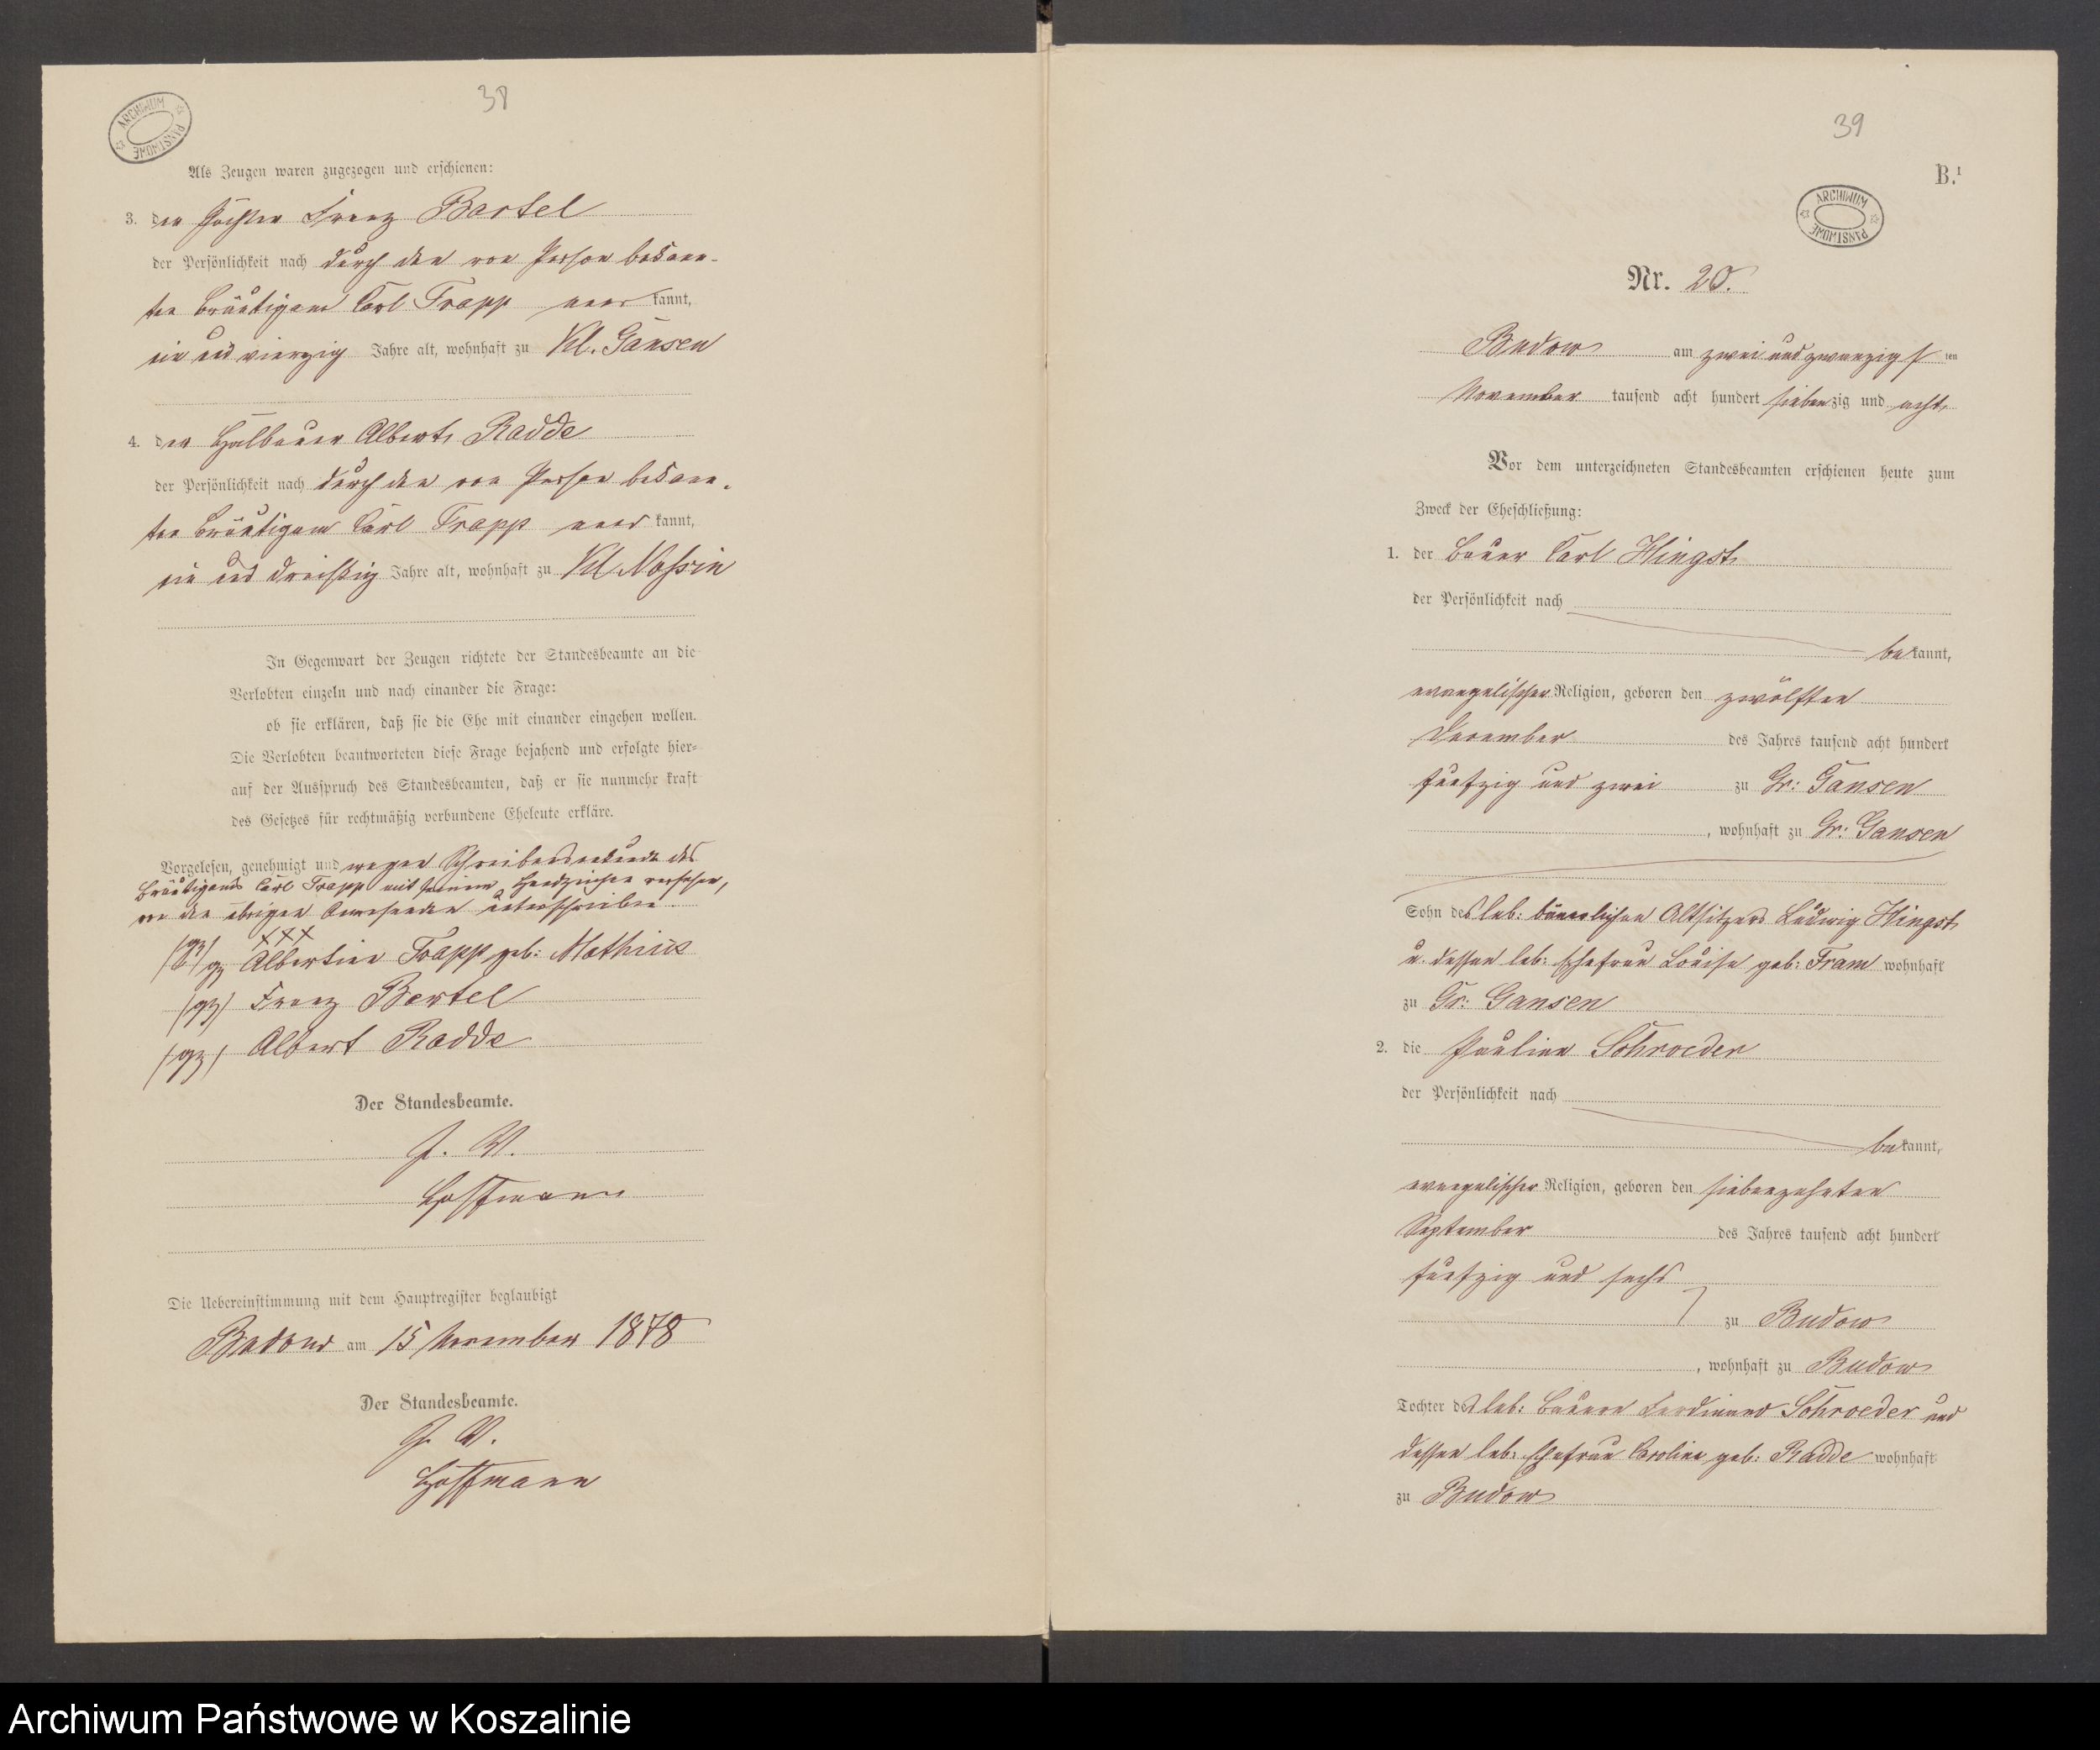 38
ARCHIWUM PAŃSTWOWE
Als Zeugen waren zugezogen und erschienen:
3. der Pächter Franz Bartel
der Persönlichkeit nach durch den von Person bekann-
ten Bräutigam Carl Trapp kannt,
ein und vierzig Jahre alt, wohnhaft zu Kl. Gansen
4. der Halbbauer Albert Radde
der Persönlichkeit nach durch den von Person bekann-
ten Bräutigam Carl Trapp kannt,
ein und dreißig Jahre alt, wohnhaft zu Kl. Nossin
In Gegenwart der Zeugen richtete der Standesbeamte an die
Verlobten einzeln und nach einander die Frage:
ob sie erklären, daß sie die Ehe mit einander eingehen wollen.
Die Verlobten beantworteten diese Frage bejahend und erfolgte hier-
auf der Ausspruch des Standesbeamten, daß er sie nunmehr kraft
des Gesetzes für rechtmäßig verbundene Eheleute erkläre.
Vorgelesen, genehmigt und wegen Schreibensunkunde des
Bräutigams Carl Trapp mit seinem Handzeichen versehen,
von den übrigen Anwesenden unterschrieben.
XXX
gz Albertine Trapp geb: Mathius
(gz) Franz Bartel
(gz) Albert Radde
Der Standesbeamte.
J. V.
Hoffmann
Die Uebereinstimmung mit dem Hauptregister beglaubigt
Budow am 15 November 1878
Der Standesbeamte.
J. V.
Hoffmann
39
B.¹
ARCHIWUM PAŃSTWOWE
Nr. 20.
Budow am zwei und zwanzigsten
November tausend acht hundert siebenzig und acht
Vor dem unterzeichneten Standesbeamten erschienen heute zum
Zweck der Eheschließung:
1. der Bauer Carl Hingst
der Persönlichkeit nach
bekannt,
evangelischer Religion, geboren den zwölften
December des Jahres tausend acht hundert
fünfzig und zwei zu Gr: Gansen
, wohnhaft zu Gr: Gansen
Sohn des leb: bäuerlichen Altsitzers Ludwig Hingst
u. dessen leb: Ehefrau Louise geb: Fram wohnhaft
zu Gr: Gansen
2. die Pauline Schroeder
der Persönlichkeit nach
bekannt,
evangelischer Religion, geboren den siebenzehnten
September des Jahres tausend acht hundert
fünfzig und sechs
zu Budow
, wohnhaft zu Budow
Tochter des leb: Bauern Ferdinand Schroeder und
dessen leb: Ehefrau Caroline geb: Radde wohnhaft
zu Budow
Archiwum Państwowe w Koszalinie